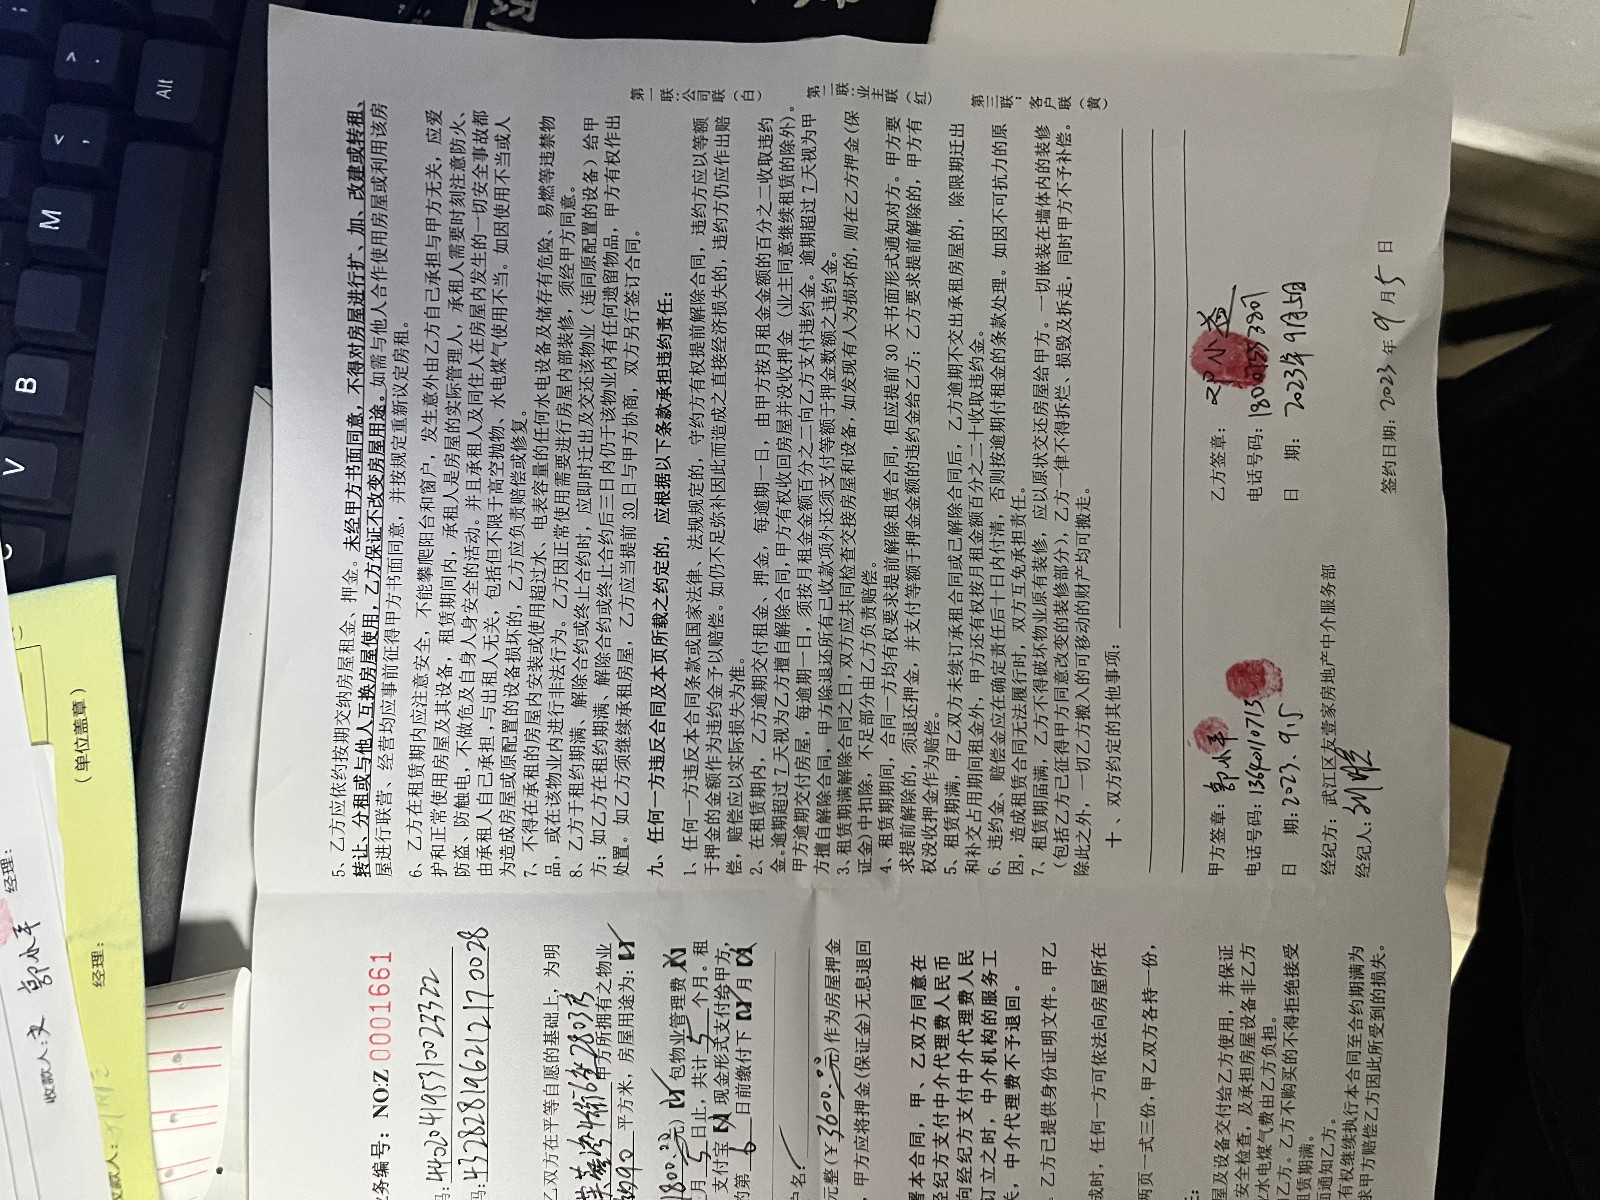 5、乙方应依约按期交纳房屋租金、押金。未经甲方书面同意，不得对房屋进行扩、加、改建或转租、
转让、分租或与他人互换房屋使用，乙方保证不改变房屋用途。如需与他人合作使用房屋或利用该房
屋进行联营、经营均应事前征得甲方书面同意，并按规定重新议定房租。
6、乙方在租赁期内应注意安全，不能攀爬阳台和窗户，发生意外由乙方自己承担与甲方无关，应爱
护和正常使用房屋及其设备，租赁期间内，承租人是房屋的实际管理人，承租人需要时刻注意防火、
防盗、防触电，不做危及自身人身安全的活动。并且承租人及同住人在房屋内发生的一切安全事故都
由承租人自己承担，与出租人无关，包括但不限于高空抛物、水电煤气使用不当。如因使用不当或人
为造成房屋或原配置的设备损坏的，乙方应负责赔偿或修复。
7、不得在承租的房屋内安装或使用超过水、电表容量的任何水电设备及储存有危险、易燃等违禁物
品，或在该物业内进行非法行为。乙方因正常使用需要进行房屋内部装修，须经甲方同意。
8、乙方于租约期满、解除合约或终止合约时，应即时迁出及交还该物业（连同原配置的设备）给甲
方；如乙方在租约期满、解除合约或终止合约后三日内仍于该物业内有任何遗留物品，甲方有权作出
处置。如乙方须继续承租房屋，乙方应当提前 30 日与甲方协商，双方另行签订合同。
九、任何一方违反合同及本页所载之约定的，应根据以下条款承担违约责任：
1、任何一方违反本合同条款或国家法律、法规规定的，守约方有权提前解除合同，违约方应以等额
于押金的金额作为违约金予以赔偿。如仍不足弥补因此而造成之直接经济损失的，违约方仍应作出赔
偿，赔偿应以实际损失为准。
2、在租赁期内，乙方逾期交付租金、押金，每逾期一日，由甲方按月租金金额的百分之二收取违约
金。逾期超过 7 天视为乙方擅自解除合同，甲方有权收回房屋并没收押金（业主同意继续租赁的除外）。
甲方逾期交付房屋，每逾期一日，须按月租金金额百分之二向乙方支付违约金。逾期超过 7 天视为甲
方擅自解除合同，甲方除退还所有已收款项外还须支付等额于押金数额之违约金。
3、租赁期满解除合同之日，双方应共同检查交接房屋和设备，如发现有人为损坏的，则在乙方押金（保
证金）中扣除，不足部分由乙方负责赔偿。
4、租赁期期间，合同一方均有权要求提前解除租赁合同，但应提前 30 天书面形式通知对方。甲方要
求提前解除的，须退还押金，并支付等额于押金金额的违约金给乙方；乙方要求提前解除的，甲方有
权没收押金作为赔偿。
5、租赁期满，甲乙双方未续订承租合同或已解除合同后，乙方逾期不交出承租房屋的，除限期迁出
和补交占用期间租金外，甲方还有权按月租金额百分之二十收取违约金。
6、违约金、赔偿金应在确定责任后十日内付清，否则按逾期付租金的条款处理。如因不可抗力的原
因，造成租赁合同无法履行时，双方互免承担责任。
7、租赁期届满，乙方不得破坏物业原有装修，应以原状交还房屋给甲方。一切嵌装在墙体内的装修
（包括乙方已征得甲方同意改变的装修部分），乙方一律不得拆烂、损毁及拆走，同时甲方不予补偿。
除此之外，一切乙方搬入的可移动的财产均可搬走。
十、双方约定的其他事项：
甲方签章：郭水平
电话号码：13640110713
日 期：2023.9.5
乙方签章：邓小
电话号码：
日 期：2023年9月5日
经纪方：武江区友壹家房地产中介服务部
经纪人：
签约日期：2023 年 9 月 5 日
第一联：公司联（白）
第二联：业主联（红）
第三联：客户联（黄）
务编号：NO:Z 0001661
码：440204195310023322
码：432828196212170028
乙双方在平等自愿的基础上，为明
甲方所拥有之物业
平方米，房屋用途为：
包物业管理费
月 5 日止，共计 5 个月。租
支付宝 现金形式支付给甲方，
的第 6 日前缴付下 月
户名：
元整（￥3600.00元）作为房屋押金
，甲方应将押金（保证金）无息退回
署本合同，甲、乙双方同意在
经纪方支付中介代理费人民币
向经纪方支付中介代理费人民
订立之时，中介机构的服务工
，中介代理费不予退回。
。乙方已提供身份证明文件。甲乙
成时，任何一方可依法向房屋所在
两页一式三份，甲乙双方各持一份，
屋及设备交付给乙方使用，并保证
安全检查，及承担房屋设备非乙方
水电煤气费由乙方负担。
乙方。乙方不购买的不得拒绝接受
租赁期满。
通知乙方。
有权继续执行本合同至合约期满为
求甲方赔偿乙方因此所受到的损失。
经理：
收款人：
郭水平
（单位盖章）
经理：
收款人：
Alt
M
B
V
C